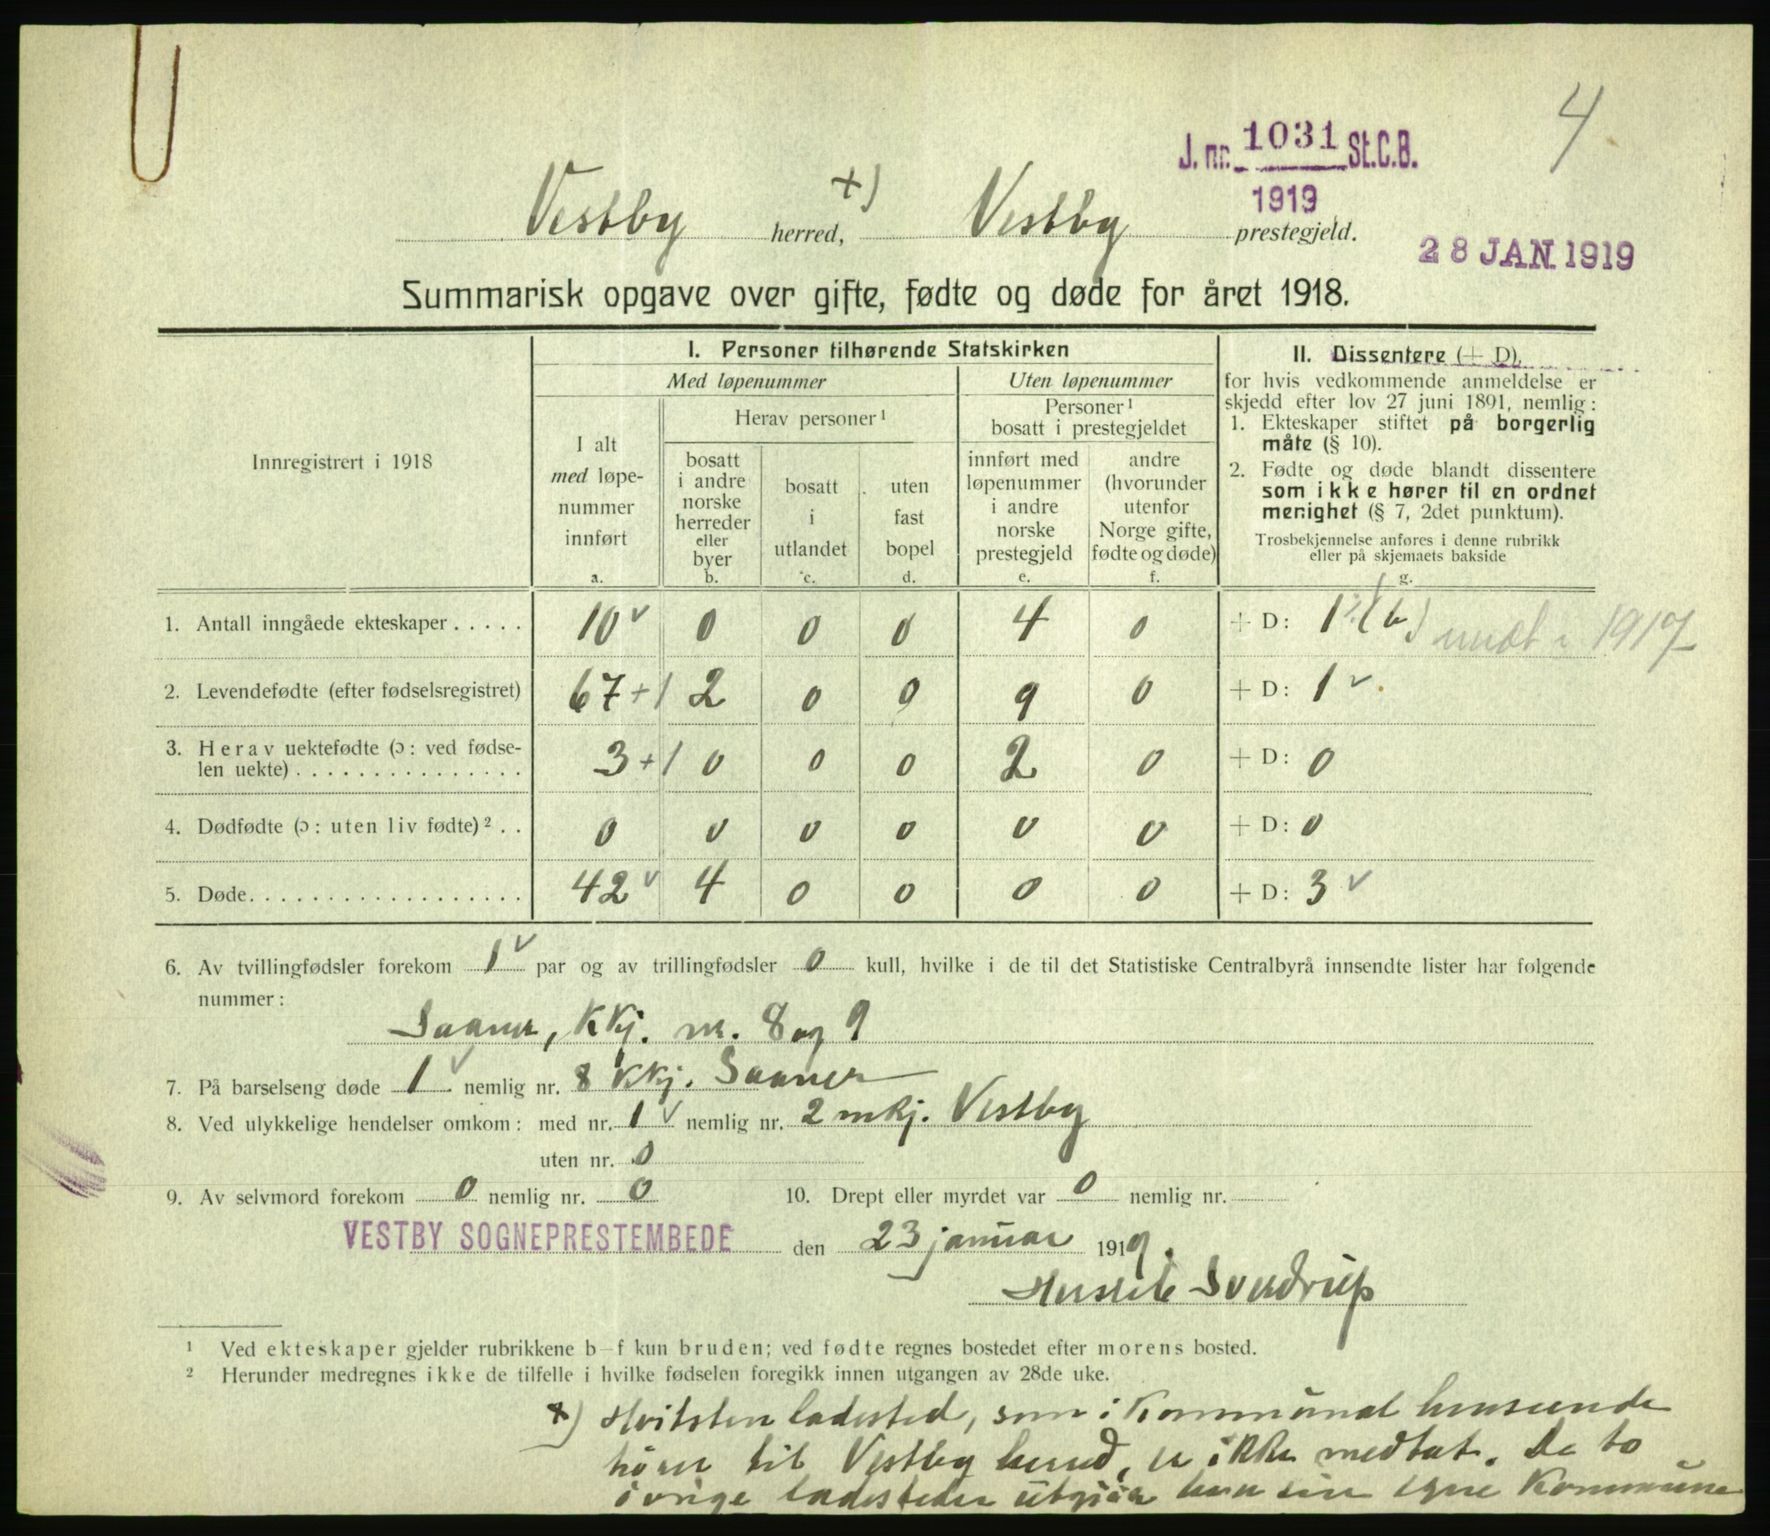 4
J. nr. 1031 St.C.B.
1919
Vestby herred, +) Vestby prestegjeld.
28 JAN. 1919
Summarisk opgave over gifte, fødte og døde for året 1918.
Innregistrert i 1918
I. Personer tilhørende Statskirken
Med løpenummer
Uten løpenummer
I alt
med løpe-
nummer
innført
a.
Herav personer¹
bosatt
i andre
norske
herreder
eller
byer
b.
bosatt
i
utlandet
c.
uten
fast
bopel
d.
Personer¹
bosatt i prestegjeldet
innført med
løpenummer
i andre
norske
prestegjeld
e.
andre
(hvorunder
utenfor
Norge gifte,
fødte og døde)
f.
II. Dissentere (+ D),
for hvis vedkommende anmeldelse er
skjedd efter lov 27 juni 1891, nemlig:
1. Ekteskaper stiftet på borgerlig
måte (§ 10).
2. Fødte og døde blandt dissentere
som ikke hører til en ordnet
menighet (§ 7, 2det punktum).
Trosbekjennelse anføres i denne rubrikk
eller på skjemaets bakside
g.
1. Antall inngåede ekteskaper . . . . . 10 ✓ 0 0 0 4 0 + D: 1 (b) 1917
2. Levendefødte (efter fødselsregistret) 67 + 1 2 0 0 9 0 + D: 1 ✓
3. Herav uektefødte (ɔ: ved fødse-
len uekte) . . . . . . . . . . . . . . . 3 + 1 0 0 0 2 0 + D: 0
4. Dødfødte (ɔ: uten liv fødte)² . . 0 0 0 0 0 0 + D: 0
5. Døde. . . . . . . . . . . . . . . . . . 42 ✓ 4 0 0 0 0 + D: 3 ✓
6. Av tvillingfødsler forekom 1 ✓ par og av trillingfødsler 0 kull, hvilke i de til det Statistiske Centralbyrå innsendte lister har følgende
nummer:
Saaner, Kkj. nr. 8 og 9
7. På barselseng døde 1 ✓ nemlig nr. 8 Kkj. Saaner
8. Ved ulykkelige hendelser omkom: med nr. 1 ✓ nemlig nr. 2 mkj. Vestby
uten nr. 0
9. Av selvmord forekom 0 nemlig nr. 0 10. Drept eller myrdet var 0 nemlig nr.
VESTBY SOGNEPRESTEMBEDE den 23 januar 1919.
Sverdrup
¹ Ved ekteskaper gjelder rubrikkene b–f kun bruden; ved fødte regnes bostedet efter morens bosted.
² Herunder medregnes ikke de tilfelle i hvilke fødselen foregikk innen utgangen av 28de uke.
+) Hvitsten ladested, som i kommunal henseende
hører til Vestby herred, er ikke medtat. De to
øvrige ladesteder utgjør hver sin egne Kommune